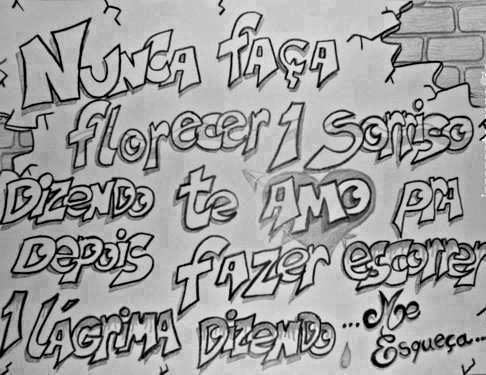 Nunca faça
florecer 1 sorriso
Dizendo te AMO pra
Depois fazer escorrer
1 lágrima Dizendo ... Me
Esqueça...